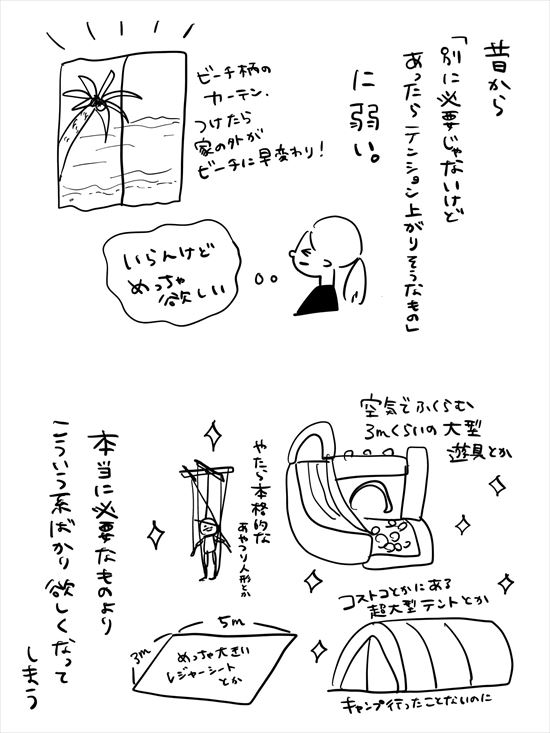 昔から
「別に必要じゃないけど
あったらテンション上がりそうなもの」
に弱い。
ビーチ柄の
カーテン、
つけたら
家の外が
ビーチに早変わり!
いらんけど
めっちゃ
欲しい
空気でふくらむ
3mくらいの大型
遊具とか
やたら本格的な
あやつり人形とか
コストコとかにある
超大型テントとか
キャンプ行ったことないのに
5m
3m
めっちゃ大きい
レジャーシート
とか
本当に必要なものより
こういう系ばかり欲しくなって
しまう